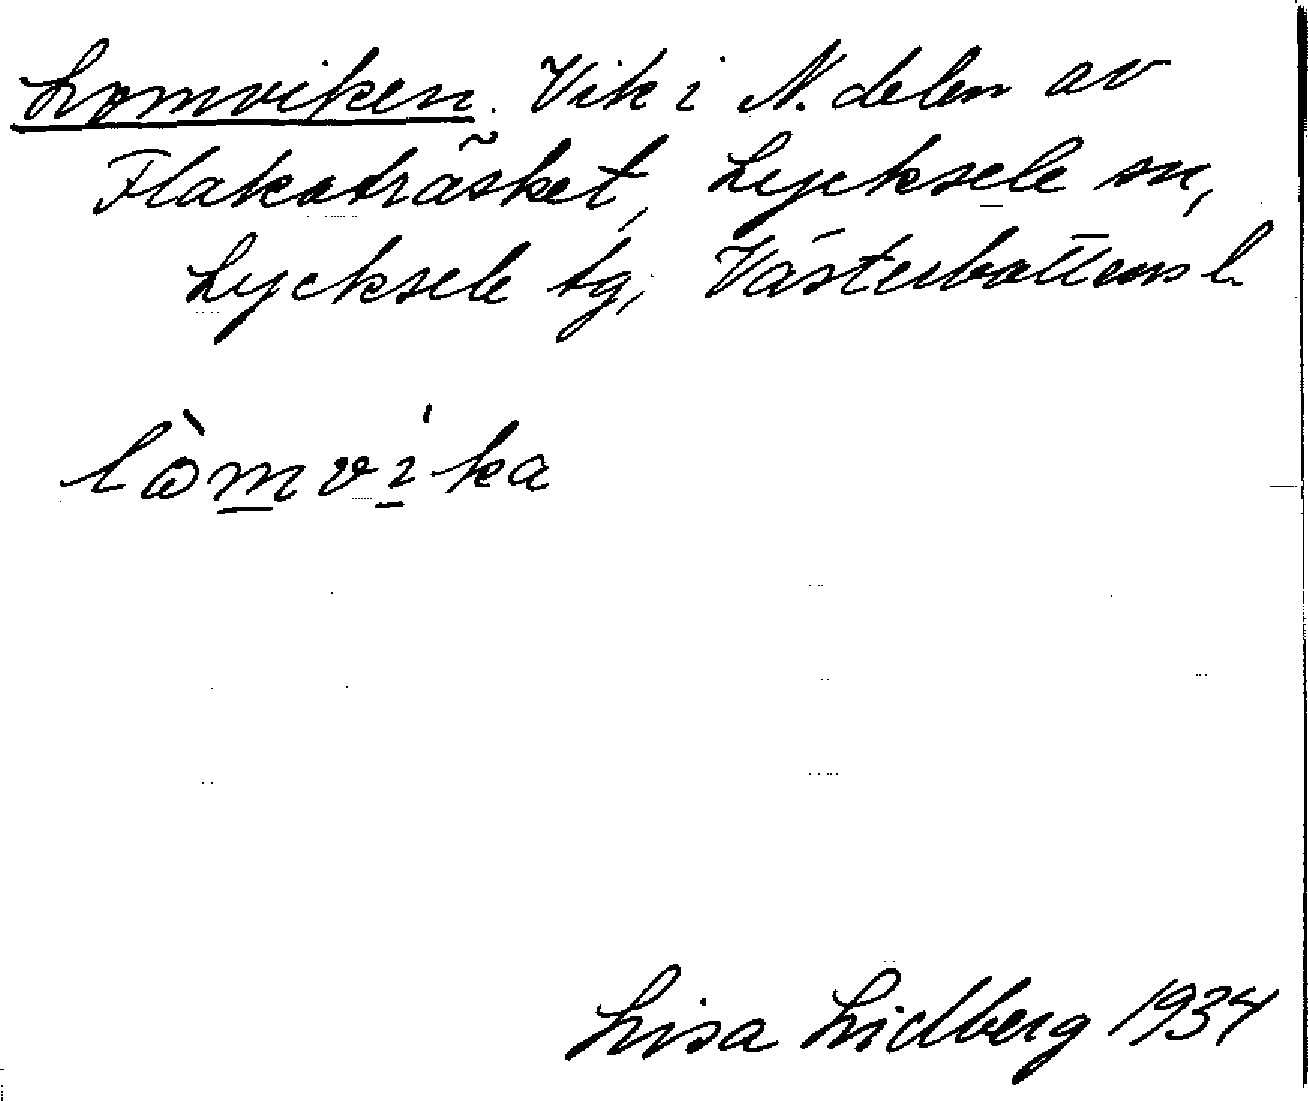 Lomviken. Vik i N. delen av
Flakaträsket, Lycksele sn,
Lycksele tg, Västerbottens l.
lòmvi̍ka
Lisa Lidberg 1934